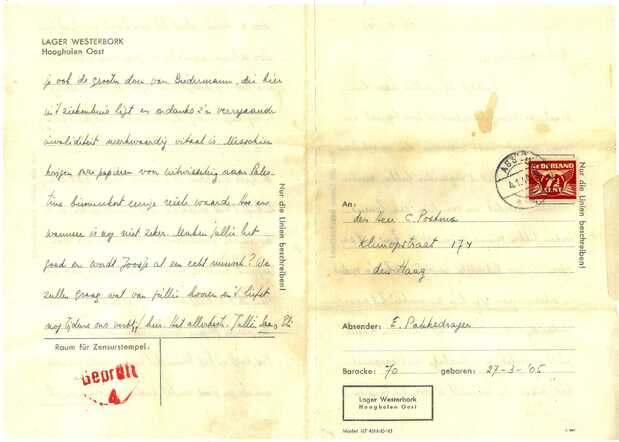 LAGER WESTERBORK
Hooghalen Oost
je ook de groeten doen van Biedermann, die hier
in 't ziekenhuis ligt en ondanks z'n vergaande
invaliditeit merkwaardig vitaal is. Misschien
krijgen onze papieren voor uitwisseling naar Pales-
tina binnenkort eenige reële waarde. Hoe en
wanneer is nog niet zeker. Maken jullie het
goed en wordt Joosje al een echt mensch? We
zullen graag wat van jullie hooren en 't liefst
nog tijdens ons verblijf hier. Het allerbeste. Jullie
Nur die Linien beschreiben!
Raum für Zensurstempel:
Geprüft
4
ASS
4.1
NEDERLAND
7½
CENT
Nur die Linien beschreiben!
An:
den Heer C. Postma
Klimopstraat 174
den Haag
Absender: E. Pakkedrager
Baracke: 70 geboren: 27-3-'05
Lager Westerbork
Hooghalen Oost